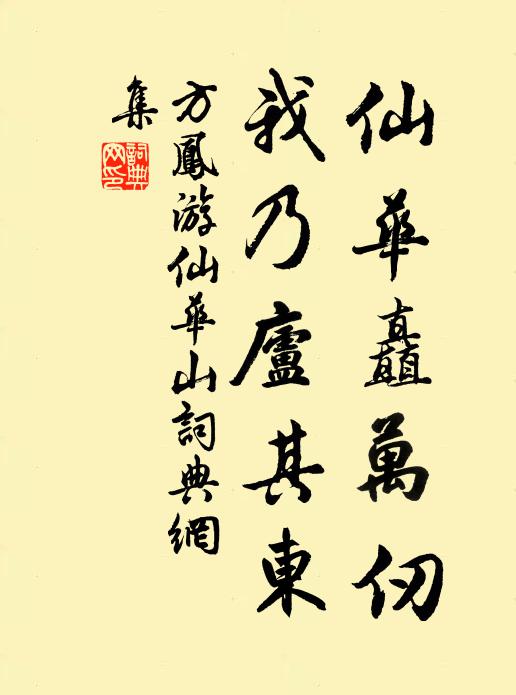 仙華矗萬仞
我乃廬其東
方鳳游仙華山詞典網
集
詞典
網印